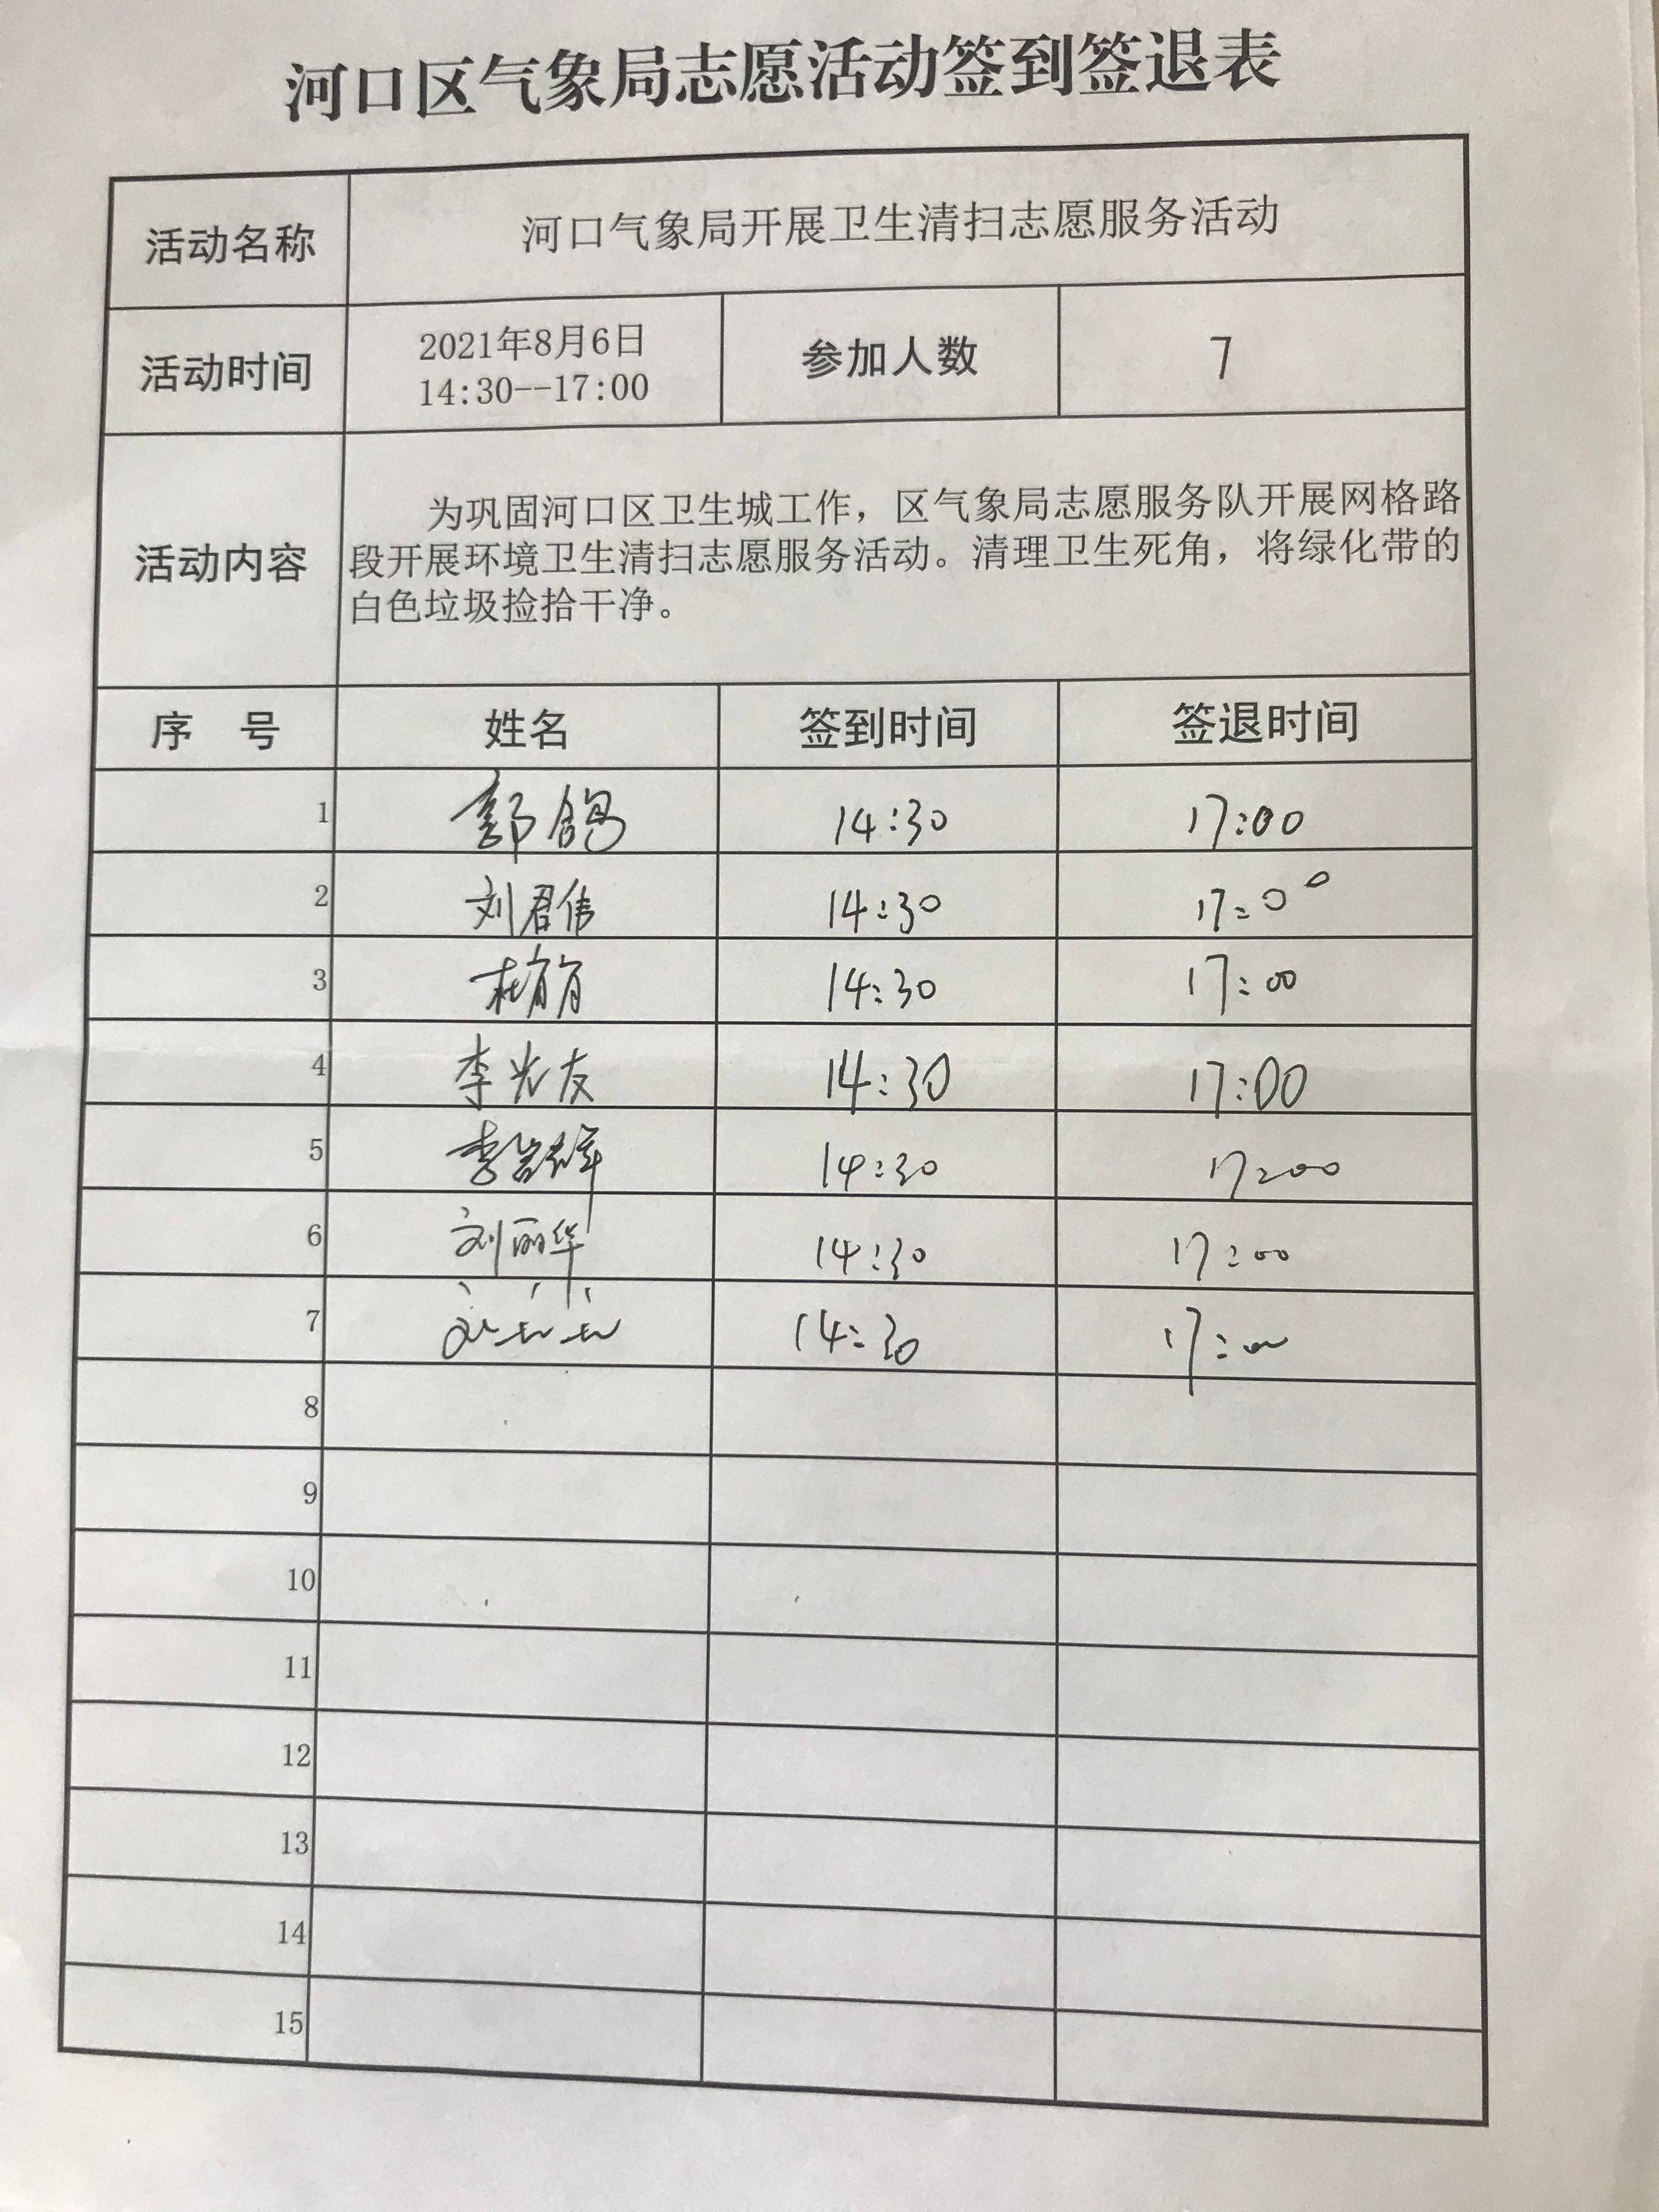 河口区气象局志愿活动签到签退表
活动名称 河口气象局开展卫生清扫志愿服务活动
活动时间 2021年8月6日 14:30--17:00 参加人数 7
活动内容
为巩固河口区卫生城工作，区气象局志愿服务队开展网格路
段开展环境卫生清扫志愿服务活动。清理卫生死角，将绿化带的
白色垃圾捡拾干净。
序 号 姓名 签到时间 签退时间
1 郭鸽 14:30 17:00
2 刘君伟 14:30 17:00
3 14:30 17:00
4 李光友 14:30 17:00
5 李 14:30 17:00
6 刘丽华 14:30 17:00
7 14:30 17:00
8
9
10
11
12
13
14
15